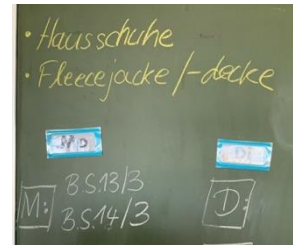 • Hausschuhe
• Fleecejacke/-decke
Mo Di
M: B.S.13/3
B.S.14/3
D: